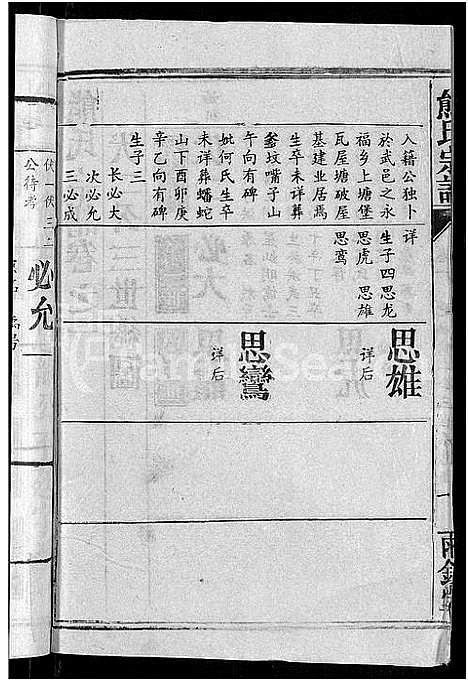 熊氏宗譜
入籍公独卜
於武邑之永
福乡上塘堡
瓦屋塘破屋
基建业居焉
生卒未详葬
釜坟嘴子山
午向有碑
妣何氏生卒
未详葬蟠蛇
山下酉卯庚
辛乙向有碑
生子三
长必大
次必允
三必成
详
生子四思龙
思虎 思雄
思鸾
思雄
详后
思鸞
详后
公待考
必允